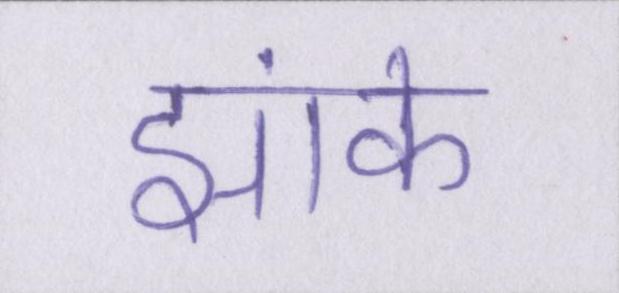 झांके